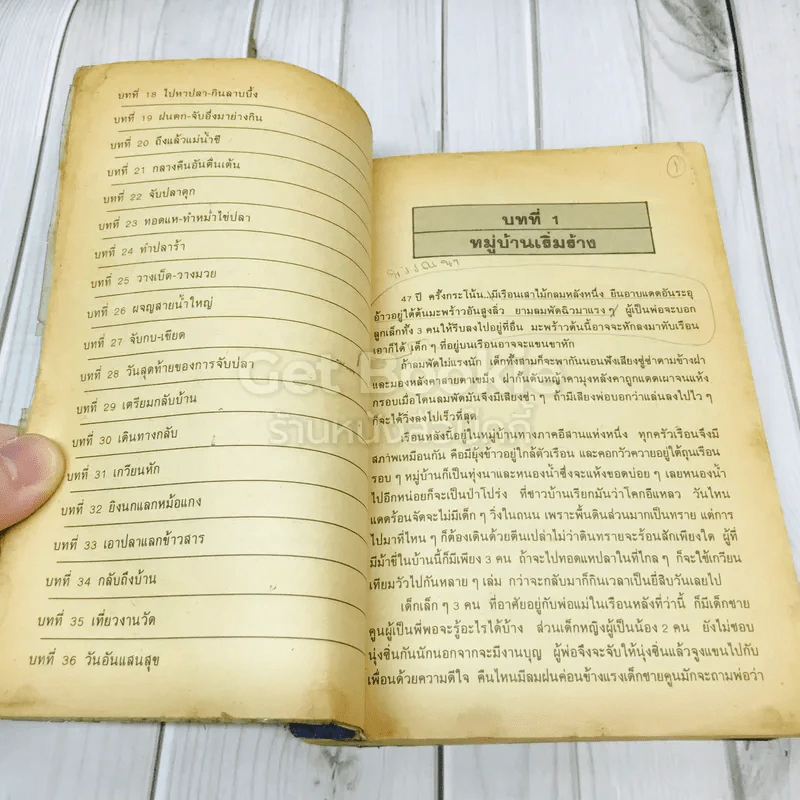 บทที่ 18 ไปหาปลา-กินลาบบึ้ง
บทที่ 19 ฝนตก-จับอึ่งมาย่างกิน
บทที่ 20 ถึงแล้วแม่น้ำชี
บทที่ 21 กลางคืนอันตื่นเต้น
บทที่ 22 จับปลาดุก
บทที่ 23 ทอดแห-ทำหม่ำไข่ปลา
บทที่ 24 ทำปลาร้า
บทที่ 25 วางเบ็ด-วางมวย
บทที่ 26 ผจญสายน้ำใหญ่
บทที่ 27 จับกบ-เขียด
บทที่ 28 วันสุดท้ายของการจับปลา
บทที่ 29 เตรียมกลับบ้าน
บทที่ 30 เดินทางกลับ
บทที่ 31 เกวียนหัก
บทที่ 32 ยิงนกแลกหม้อแกง
บทที่ 33 เอาปลาแลกข้าวสาร
บทที่ 34 กลับถึงบ้าน
บทที่ 35 เที่ยวงานวัด
บทที่ 36 วันอันแสนสุข
๑
บทที่ 1
หมู่บ้านเฮิ่มฮ้าง
47 ปี ครั้งกระโน้น...มีเรือนเสาไม้กลมหลังหนึ่ง ยืนอาบแดดอันระอุ
อ้าวอยู่ใต้ต้นมะพร้าวอันสูงลิ่ว ยามลมพัดฉิวมาแรง ๆ ผู้เป็นพ่อจะบอก
ลูกเล็กทั้ง 3 คนให้รีบลงไปอยู่ที่อื่น มะพร้าวต้นนี้อาจจะหักลงมาทับเรือน
เอาก็ได้ เด็ก ๆ ที่อยู่บนเรือนอาจจะแขนขาหัก
ถ้าลมพัดไม่แรงนัก เด็กทั้งสามก็จะพากันนอนฟังเสียงซู่ซ่าตามข้างฝา
และมองหลังคาสายตาเขม็ง ฝากั้นด้นหญ้าคามุงหลังคาถูกแดดเผาจนแห้ง
กรอบเมื่อโดนลมพัดมันจึงมีเสียงซ่า ๆ ถ้ามีเสียงพ่อบอกว่าแล่นลงไปไว ๆ
ก็จะได้วิ่งลงไปเร็วที่สุด
เรือนหลังนี้อยู่ในหมู่บ้านทางภาคอีสานแห่งหนึ่ง ทุกครัวเรือนจึงมี
สภาพเหมือนกัน คือมียุ้งข้าวอยู่ใกล้ตัวเรือน และคอกวัวควายอยู่ใต้ถุนเรือน
รอบ ๆ หมู่บ้านก็เป็นทุ่งนาและหนองน้ำซึ่งจะแห้งขอดบ่อย ๆ เลยหนองน้ำ
ไปอีกหน่อยก็จะเป็นป่าโปร่ง ที่ชาวบ้านเรียกมันว่าโคกอีแหลว วันไหน
แดดร้อนจัดจะไม่มีเด็ก ๆ วิ่งในถนน เพราะพื้นดินส่วนมากเป็นทราย แต่การ
ไปมาที่ไหน ๆ ก็ต้องเดินด้วยตีนเปล่าไม่ว่าดินทรายจะร้อนสักเพียงใด ผู้ที่
มีม้าขี่ในบ้านนี้ก็มีเพียง 3 คน ถ้าจะไปทอดแหปลาในที่ไกล ๆ ก็จะใช้เกวียน
เทียมวัวไปกันหลาย ๆ เล่ม กว่าจะกลับมาก็กินเวลาเป็นยี่สิบวันเลยไป
เด็กเล็ก ๆ 3 คน ที่อาศัยอยู่กับพ่อแม่ในเรือนหลังที่ว่านี้ ก็มีเด็กชาย
คูนผู้เป็นพี่พอจะรู้อะไรได้บ้าง ส่วนเด็กหญิงผู้เป็นน้อง 2 คน ยังไม่ชอบ
นุ่งซิ่นกันนักนอกจากจะมีงานบุญ ผู้พ่อจึงจะจับให้นุ่งซิ่นแล้วจูงแขนไปกับ
เพื่อนด้วยความดีใจ คืนไหนมีลมฝนค่อนข้างแรงเด็กชายคูนมักจะถามพ่อว่า
Get